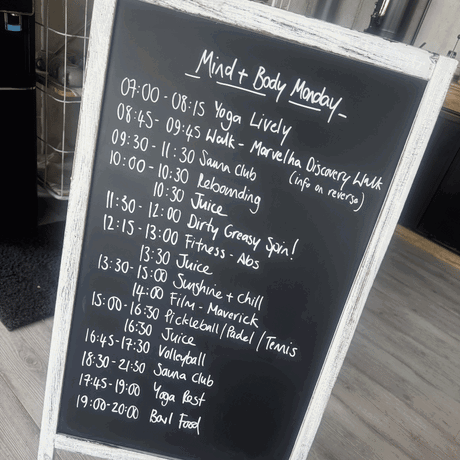 Mind + Body Monday
07:00 - 08:15 Yoga Lively
08:45 - 09:45 Walk - Marvelha Discovery Walk
(info on reverse)
09:30 - 11:30 Sauna Club
10:00 - 10:30 Rebounding
10:30 Juice
11:30 - 12:00 Dirty Greasy Spin!
12:15 - 13:00 Fitness - Abs
13:30 Juice
13:30 - 15:00 Sunshine + Chill
14:00 Film - Maverick
15:00 - 16:30 Pickleball / Padel / Tennis
16:30 Juice
16:45 - 17:30 Volleyball
18:30 - 21:30 Sauna Club
17:45 - 19:00 Yoga Rest
19:00 - 20:00 Bowl Food